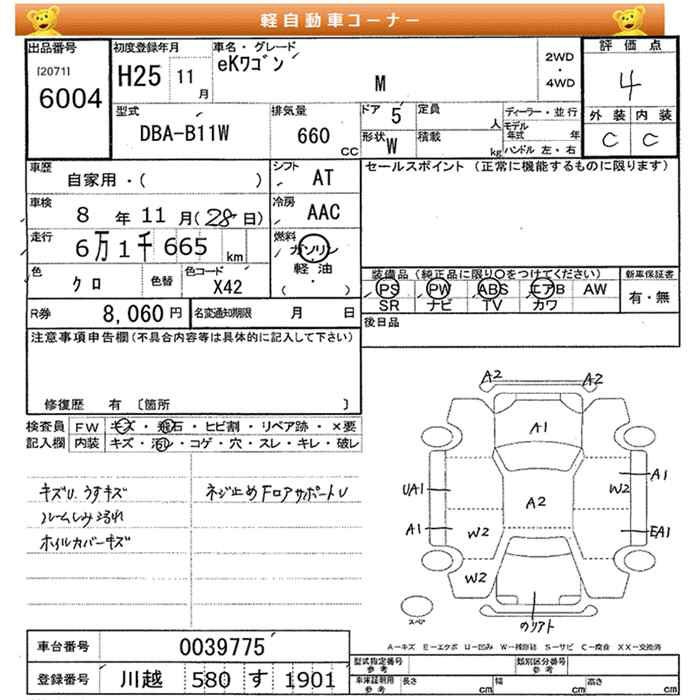 軽自動車コーナー
出品番号
[2071]
6004
初度登録年月
H25 11 月
車名・グレード
eKワゴン
M
2WD
・
4WD
評価点
4
外装 内装
C C
型式
DBA-B11W
排気量
660 CC
ドア 5
定員 人
形状 W
積載 kg
ディーラー・並行
モデル年式 年
ハンドル 左・右
車歴
自家用・( )
シフト AT
セールスポイント (正常に機能するものに限ります)
車検
8 年 11 月(28日)
冷房 AAC
走行
6万1千665 km
燃料
ガソリン
軽油
( ・ )
色
クロ
色替
色コード
X42
装備品(純正品に限り○をつけてください)
PS PW ABS エアB AW
SR ナビ TV カワ
新車保証書
有・無
R券 8,060 円
名変通知期限 月 日
後日品
注意事項申告欄(不具合内容等は具体的に記入して下さい)
修復歴 有 〔箇所 〕
検査員記入欄
FW キズ・飛石・ヒビ割・リペア跡・×要
内装 キズ・汚レ・コゲ・穴・スレ・キレ・破レ
キズU.うすキズ
ルームしみ汚れ
ホイルカバーキズ
ネジ止めFロアサポートU
A2 A2
A1
A1
UA1
A2
W2
A1
W2
EA1
W2
のりアト
スペア
A-キズ E-エクボ U-凹み W-補修跡 S-サビ C-腐食 XX-交換済
車台番号 0039775
登録番号 川越 580 す 1901
型式指定番号
参考
類別区分番号
参考
車庫証明用
参考
長さ cm
幅 cm
高さ cm